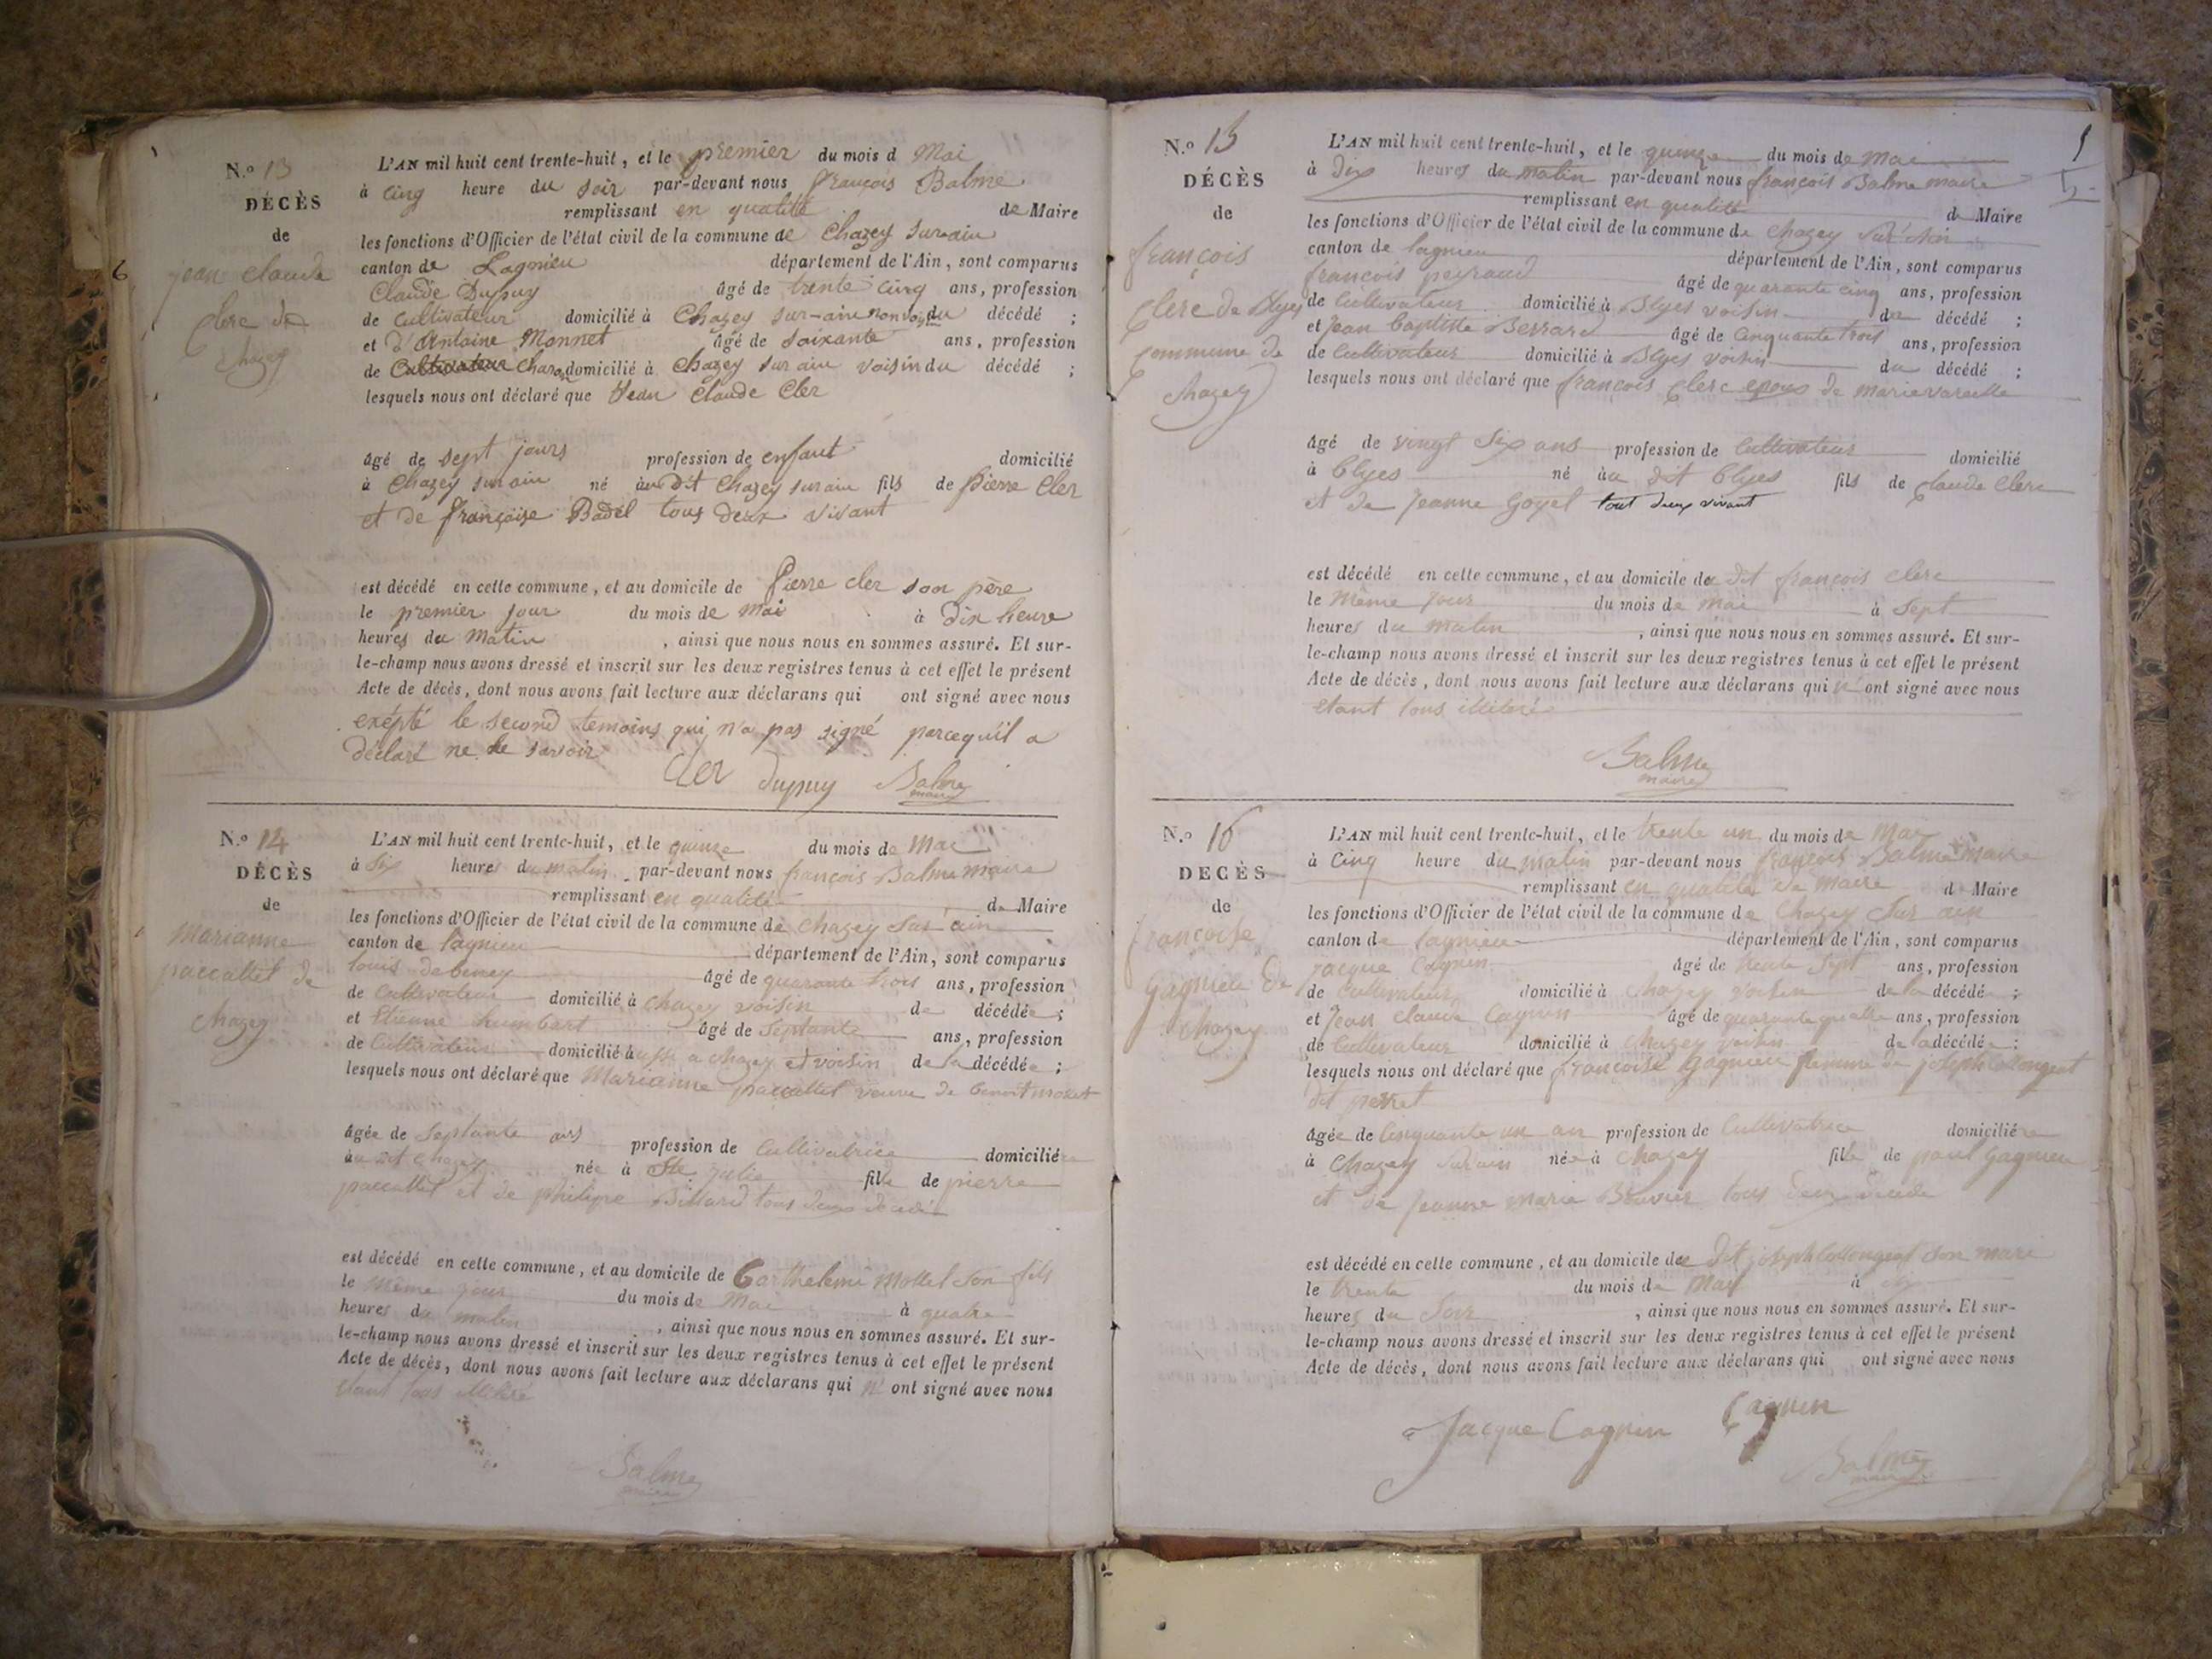 N.º 13
DÉCÈS
de
jean Claude
Clerc de
Chazey
6
L'AN mil huit cent trente-huit, et le premier du mois d Mai
à cinq heure du soir par-devant nous françois Balme
remplissant en qualité de Maire
les fonctions d'Officier de l'état civil de la commune de Chazey sur-ain
canton de Lagnieu département de l'Ain, sont comparus
Claude Dupuy âgé de trente cinq ans, profession
de cultivateur domicilié à Chazey sur-ain non voisin du décédé ;
et d'Antoine Monnet âgé de soixante ans, profession
de domicilié à Chazey sur ain voisin du décédé ;
lesquels nous ont déclaré que Jean Claude Cler
âgé de sept jours profession de enfant domicilié
à Chazey sur ain né au dit Chazey sur ain fils de Pierre Cler
et de françoise Badel tous deux vivant
est décédé en cette commune, et au domicile de Pierre cler son père
le premier jour du mois de Mai à dix heure
heures du Matin , ainsi que nous nous en sommes assuré. Et sur-
le-champ nous avons dressé et inscrit sur les deux registres tenus à cet effet le présent
Acte de décès, dont nous avons fait lecture aux déclarans qui ont signé avec nous
exépté le second temoins qui n'a pas signé parcequ'il a
déclaré ne le savoir
Cler Dupuy Balme
maire
N.º 14
DÉCÈS
de
Marianne
paccallet de
chazey
L'AN mil huit cent trente-huit, et le quinze du mois de Mai
à Six heures du matin par-devant nous françois Balme maire
remplissant en qualité de Maire
les fonctions d'Officier de l'état civil de la commune de chazey Sur ain
canton de lagnieu département de l'Ain, sont comparus
louis debeney âgé de quarante trois ans, profession
de Cultivateur domicilié à chazey voisin de décédée ;
et Etienne humbert âgé de Septante ans, profession
de Cultivateur domicilié aussi a chazey et voisin de la décédée ;
lesquels nous ont déclaré que Marianne paccallet veuve de benoit mollet
âgée de Septante ans profession de Cultivatrice domiciliée
au dit chazey née à Ste julie fille de pierre
paccallet et de philipe Billard tous deux décédé
est décédé en cette commune, et au domicile de Barthelemi Mollet son fils
le même jour du mois de Mai à quatre
heures du matin , ainsi que nous nous en sommes assuré. Et sur-
le-champ nous avons dressé et inscrit sur les deux registres tenus à cet effet le présent
Acte de décès, dont nous avons fait lecture aux déclarans qui n' ont signé avec nous
étant tous
Balme
maire
N.º 15
DÉCÈS
de
françois
Clerc de Blyes
Commune de
Chazey
L'AN mil huit cent trente-huit, et le quinze du mois de Mai
à Dix heures du matin par-devant nous françois Balme maire
remplissant en qualité de Maire
les fonctions d'Officier de l'état civil de la commune de Chazey Sur ain
canton de lagnieu département de l'Ain, sont comparus
françois peyraud âgé de quarante cinq ans, profession
de Cultivateur domicilié à Blyes voisin du décédé ;
et Jean baptiste Berrard âgé de Cinquante trois ans, profession
de Cultivateur domicilié à Blyes voisin du décédé ;
lesquels nous ont déclaré que françois Clerc epoux de Marie vareille
âgé de vingt Six ans profession de Cultivateur domicilié
à Blyes né au dit blyes fils de Claude Clerc
et de Jeanne Goyet tout deux vivant
est décédé en cette commune, et au domicile du dit françois Clerc
le même jour du mois de mai à Sept
heures du matin , ainsi que nous nous en sommes assuré. Et sur-
le-champ nous avons dressé et inscrit sur les deux registres tenus à cet effet le présent
Acte de décès, dont nous avons fait lecture aux déclarans qui n' ont signé avec nous
étant tous
Balme
maire
N.º 16
DÉCÈS
de
françoise
Gagnieu de
chazey
L'AN mil huit cent trente-huit, et le trente un du mois de Mai
à Cinq heure du matin par-devant nous françois Balme maire
remplissant en qualité de maire d Maire
les fonctions d'Officier de l'état civil de la commune de Chazey Sur ain
canton de lagnieu département de l'Ain, sont comparus
jacque Cagnin âgé de trente Sept ans, profession
de Cultivateur domicilié à Chazey voisin de la décédée ;
et Jean Claude Cagnin âgé de quarante quatre ans, profession
de Cultivateur domicilié à Chazey voisin de la décédée ;
lesquels nous ont déclaré que françoise Gagnieu femme de joseph Collongeat
dit perret
âgée de Cinquante un an profession de Cultivatrice domiciliée
à Chazey Sur ain née à Chazey fille de paul Gagnieu
et de Jeanne Marie Bouvier tous deux décédé
est décédé en cette commune, et au domicile du dit joseph Collongeat son mari
le trente du mois de Mai à
heures du Soir , ainsi que nous nous en sommes assuré. Et sur-
le-champ nous avons dressé et inscrit sur les deux registres tenus à cet effet le présent
Acte de décès, dont nous avons fait lecture aux déclarans qui ont signé avec nous
Jacque Cagnin Cagnin
Balme
maire